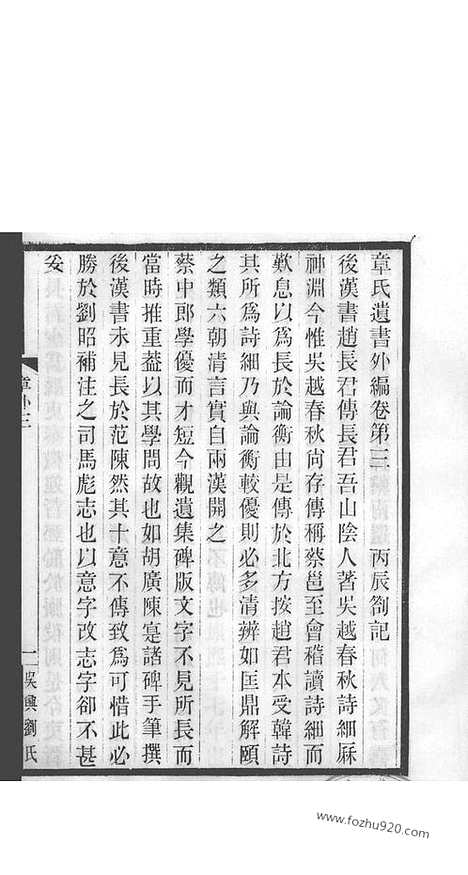 章氏遺書外編卷第三　丙辰劄記
後漢書趙長君傳長君吾山陰人著吳越春秋詩細厤
神淵今惟吳越春秋尙存傳稱蔡邕至會稽讀詩細而
歎息以爲長於論衡由是傳於北方按趙君本受韓詩
其所爲詩細乃與論衡較優則必多清辨如匡鼎解頤
之類六朝清言實自兩漢開之
蔡中郎學優而才短今觀遺集碑版文字不見所長而
當時推重葢以其學問故也如胡廣陳寔諸碑手筆撰
後漢書未見長於范陳然其十意不傳致爲可惜此必
勝於劉昭補注之司馬彪志也以意字改志字卻不甚
妥
章外三
一
吳興劉氏
www.fozhu920.com